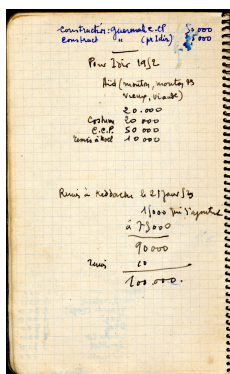 Construction: guermal c. cl 50 000
Construct " (pr Idir) 5 000
Pour Idir 1952
Aïd (mouton, moutons
vieux, viande)
20.000
20 000
C.C.P. 50 000
Remis à 10 000
Remis à Heddache le 21 Janv 53
15000 qui s'ajoutent
à 75000
90000
Remis 10
100.000.